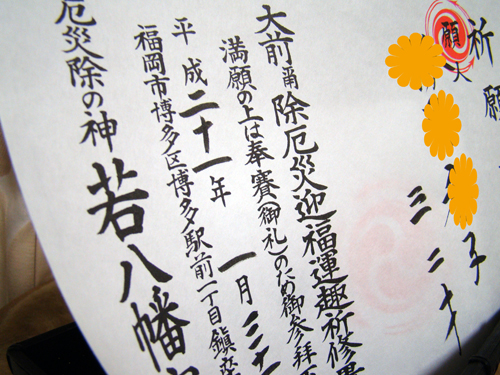 祈願
願
子 三二才
大前甪除厄災迎福運趣祈修
満願の上は奉賽(御礼)のため御参拝
平成二十一年一月三十
福岡市博多区博多駅前一丁目鎮
厄災除の神 若八幡